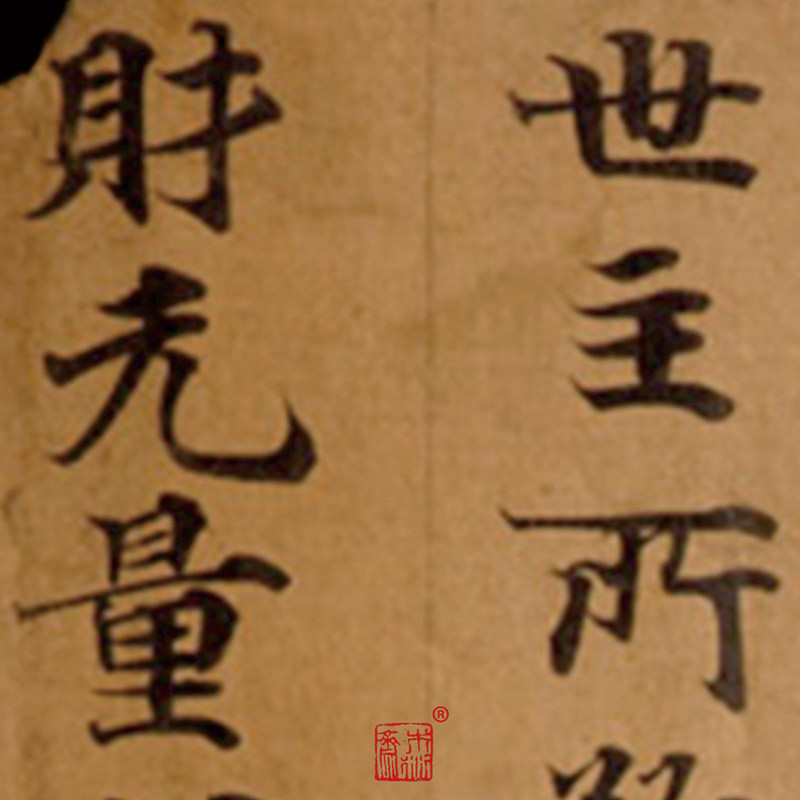 世主所
財无量